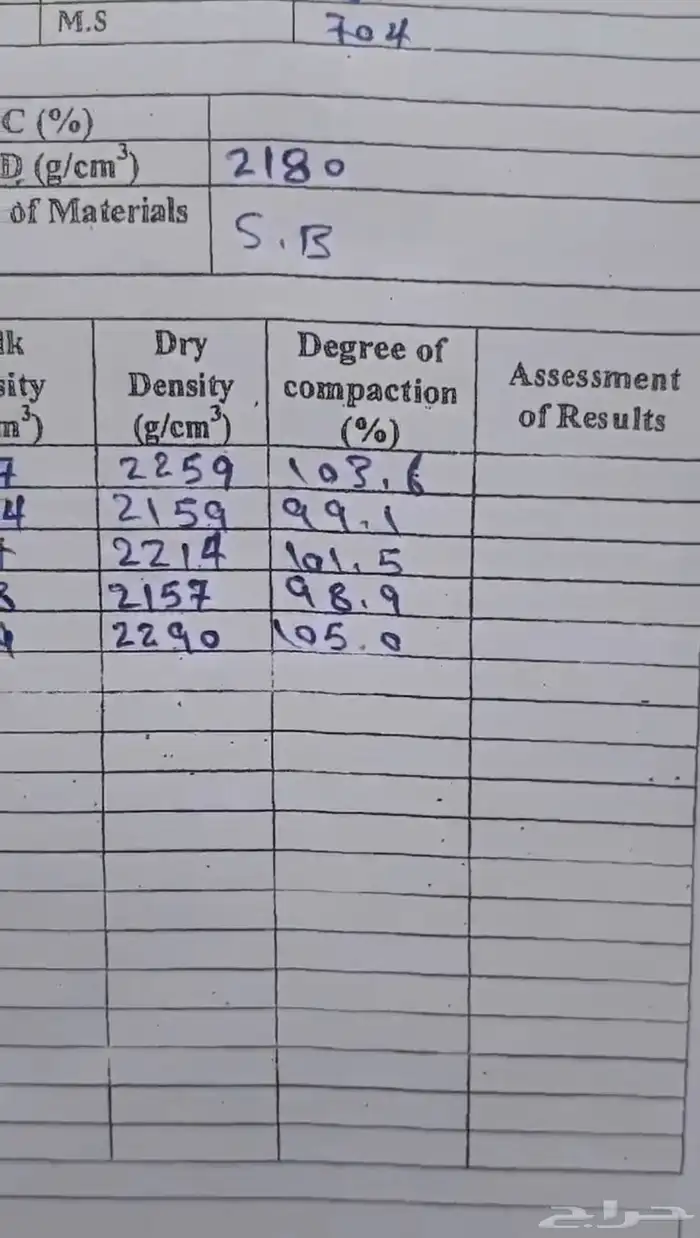 M.S 704
C (%)
D (g/cm³) 2180
of Materials S.B
lk Dry Degree of Assessment
sity Density compaction of Results
m³) (g/cm³) (%)
7 2259 103.6
4 2159 99.1
2214 101.5
3 2157 98.9
2290 105.0
حراج